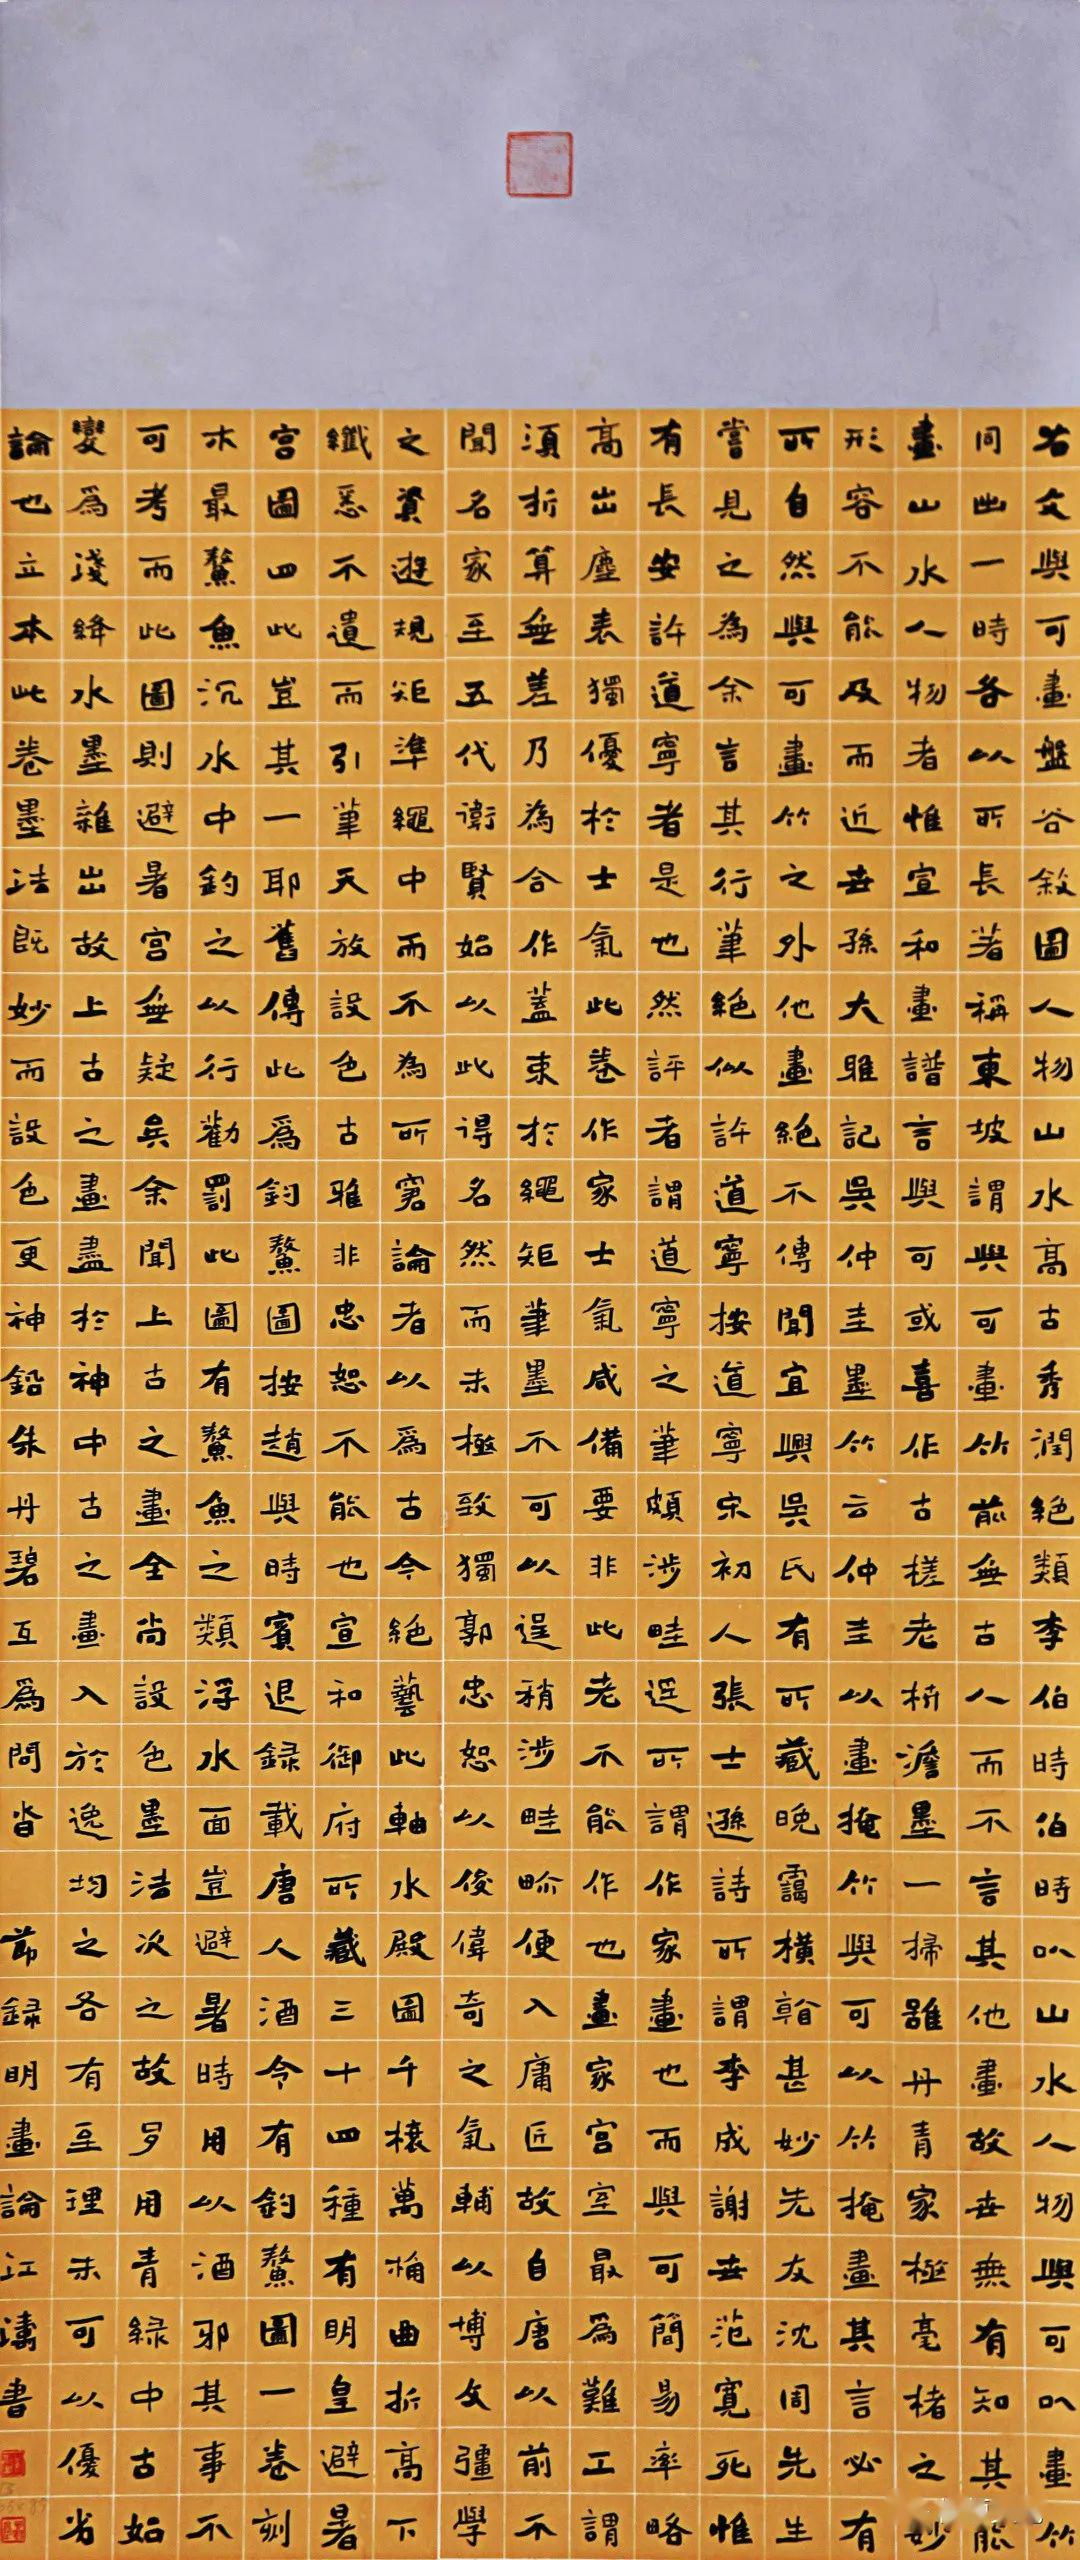 若文與可畫盤谷敘圖人物山水高古秀潤絕類李伯時伯時以山水人物與可以畫竹
同出一時各以所長著稱東坡謂與可畫竹前無古人而不言其他畫故世無有知其能
畫山水人物者惟宣和畫譜言與可或喜作古槎老枿澹墨一掃雖丹青家極毫楮之妙
形容不能及而近世孫大雅記吳仲圭墨竹云仲圭以畫掩竹與可以竹掩畫其言必有
所自然與可畫竹之外他畫絕不傳聞宜興吳氏有所藏晚靄橫看甚妙先友沈周先生
嘗見之為余言其行筆絕似許道寧按道寧宋初人張士遜詩所謂李成謝世范寬死惟
有長安許道寧者是也然評者謂道寧之筆頗涉畦逕所謂作家畫也而與可簡易率略
高出塵表獨優於士氣此卷作家士氣咸備要非此老不能作也畫家宮室最為難工謂
須折算無差乃為合作蓋束於繩矩筆墨不可以逞稍涉畦畛便入庸匠故自唐以前不
聞名家至五代衛賢始以此得名然而未極致獨郭忠恕以俊偉奇之氣輔以博文彊學
之資遊規矩準繩中而不為所窘論者以為古今絕藝此軸水殿圖千榱萬桷曲折高下
纖悉不遺而引筆天放設色古雅非忠恕不能也宣和御府所藏三十四種有明皇避暑
宮圖四此豈其一耶舊傳此為釣鰲圖按趙與時賓退錄載唐人酒令有釣鰲圖一卷刻
木最鰲魚沉水中釣之以行勸罰此圖有鰲魚之類浮水面豈避暑時用以酒邪其事不
可考而此圖則避暑宮無疑矣余聞上古之畫全尚設色墨法次之故多用青綠中古始
變為淺絳水墨雜出故上古之畫盡於神中古之畫入於逸均之各有至理未可以優劣
論也立本此卷墨法既妙而設色更神鉛朱丹碧互為間沓 節錄明畫論江濤書